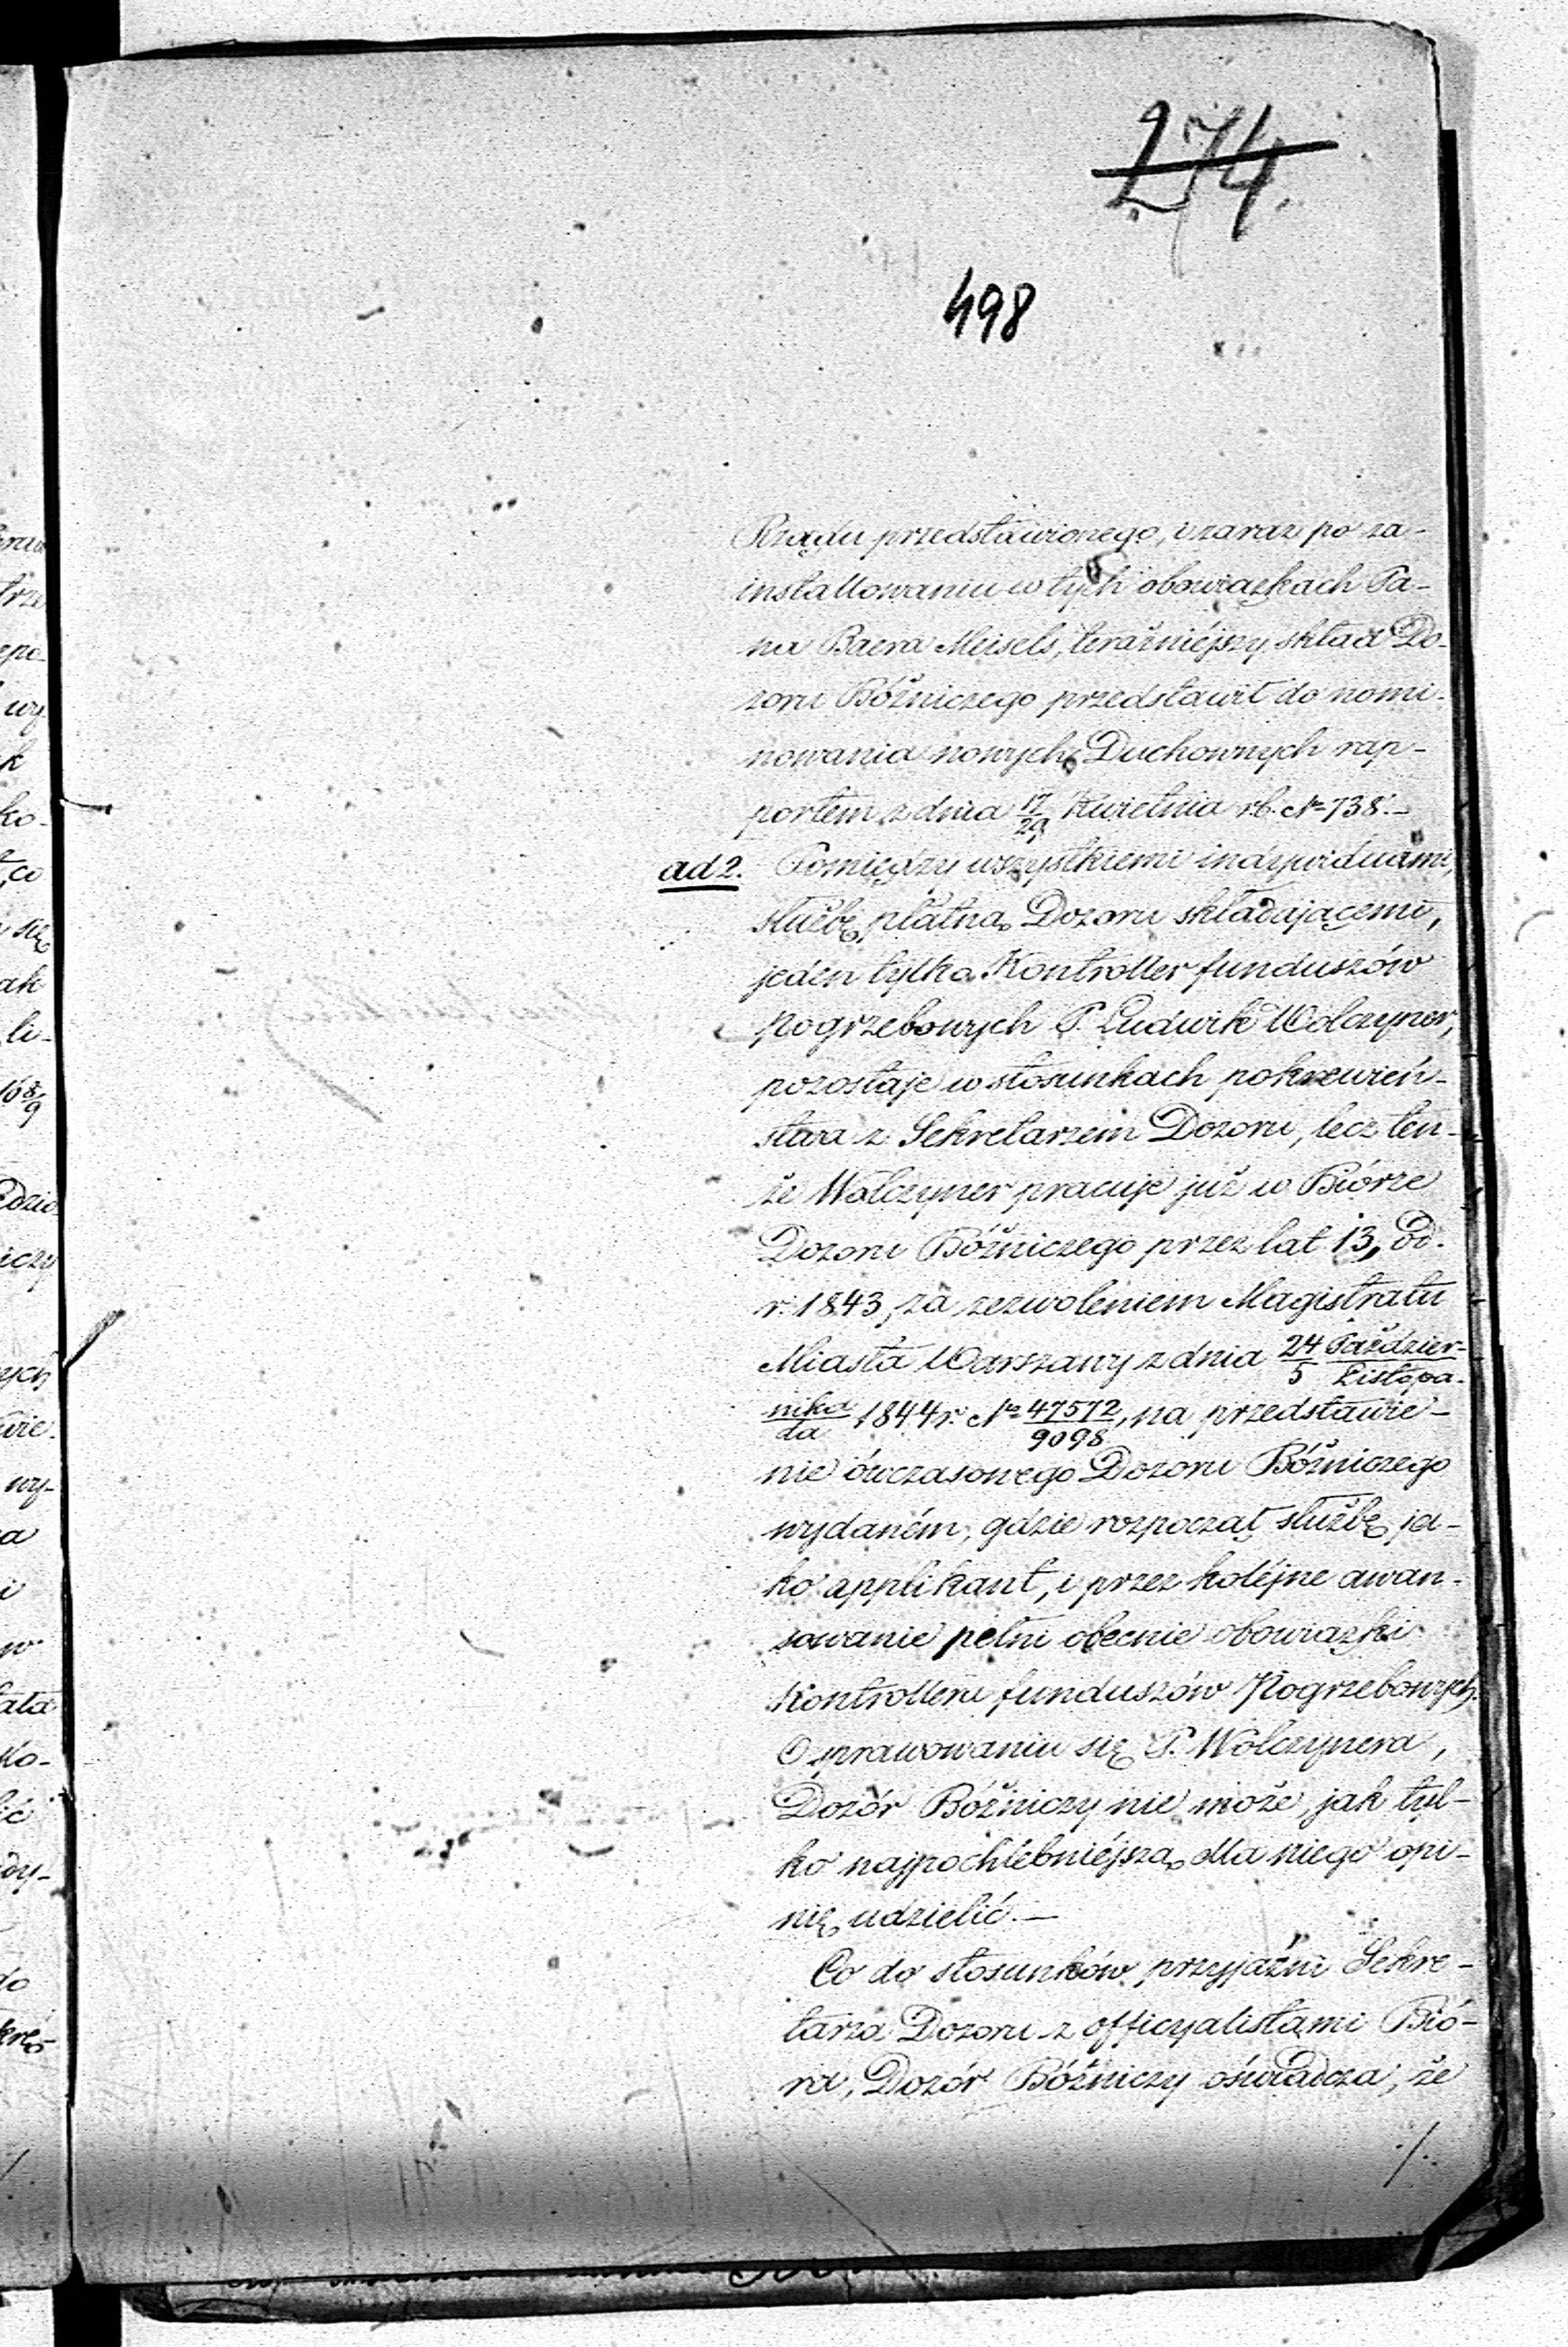 274.
498
Rządu przedstawionego, i zaraz po za-
installowaniu w tych obowiązkach Pa-
na Baera Meisels, teraźniéjszy skład Do-
zoru Bóżniczego przedstawił do nomi-
nowania nowych Duchownych rap-
portem z dnia 17/29 Kwietnia rb. № 738.-
ad 2. Pomiędzy wszystkiemi indywiduami,
służbę płatną Dozoru składającemi,
jeden tylko Kontroller funduszów
pogrzebowych P. Ludwik Wolczyner,
pozostaje w stosunkach pokrewień-
stwa z Sekretarzem Dozoru, lecz ten-
że Wolczyner pracuje już w Biórze
Dozoru Bóżniczego przez lat 13, od
r. 1843, za zezwoleniem Magistratu
Miasta Warszawy z dnia 24/5 Paździer-/Listopa-
nika/da 1844 r. № 47572/9098, na przedstawie-
nie ówczasowego Dozoru Bóżniczego
wydaném, gdzie rozpoczął służbę ja-
ko applikant, i przez koléjne awan-
sowanie pełni obecnie obowiązki
Kontrollera funduszów Pogrzebowych.
O sprawowaniu się P. Wolczynera,
Dozór Bóżniczy nie może, jak tyl-
ko najpochlébniéjszą dla niego opi-
nię udzielić.-
Co do stosunków przyjaźni Sekre-
tarza Dozoru z officyalistami Bió-
ra, Dozór Bóżniczy oświadcza, że
./.